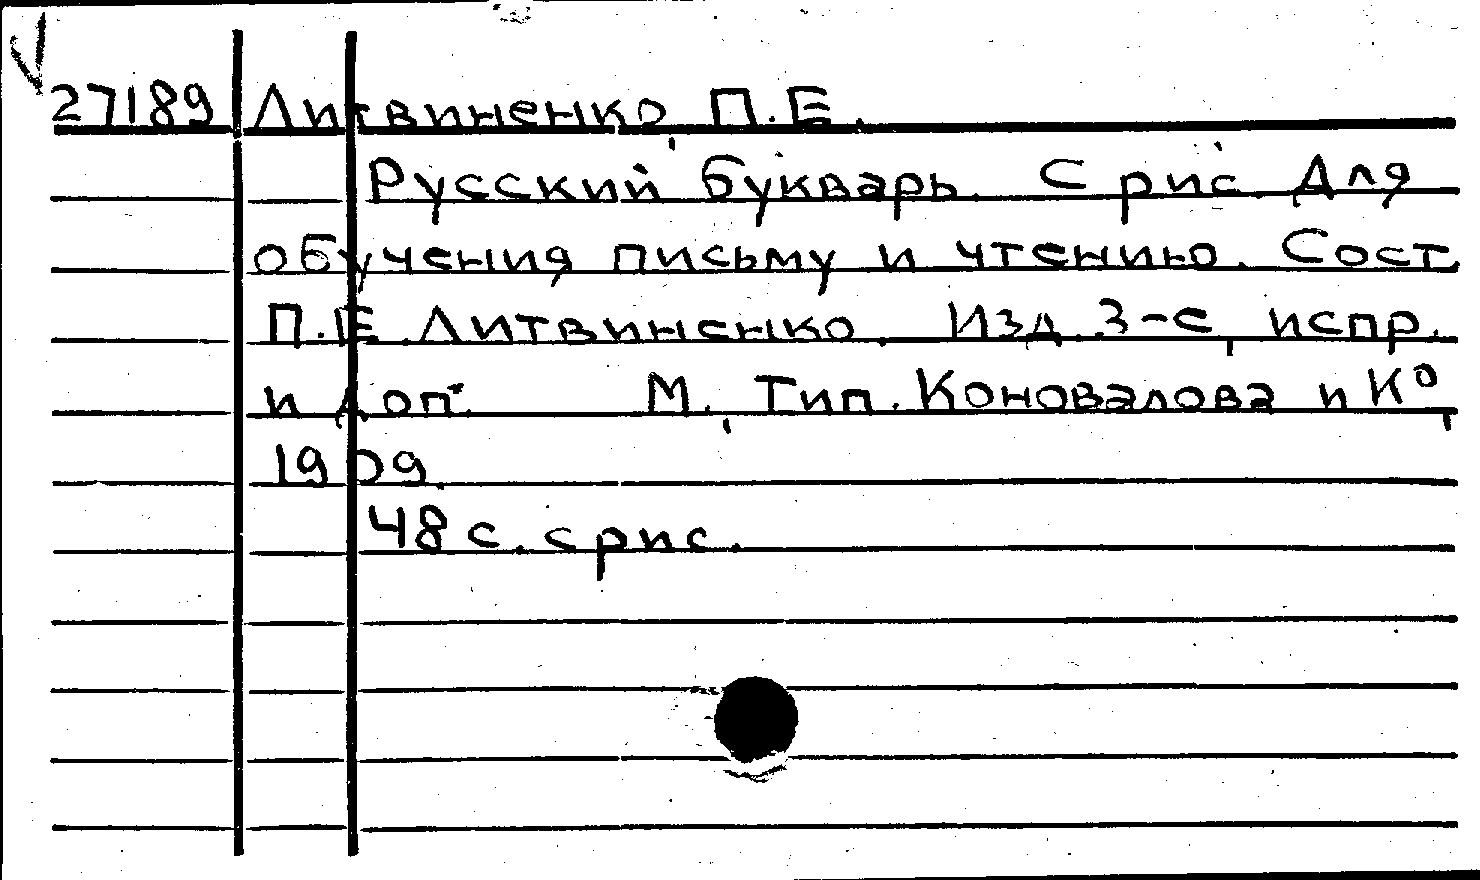 27189 Литвиненко, П.Е.
Русский букварь. С рис. Для
обучения письму и чтению. Сост.
П.Е. Литвиненко. Изд. 3-е, испр.
и доп. М., Тип. Коновалова и К°,
1909.
48 с. с рис.